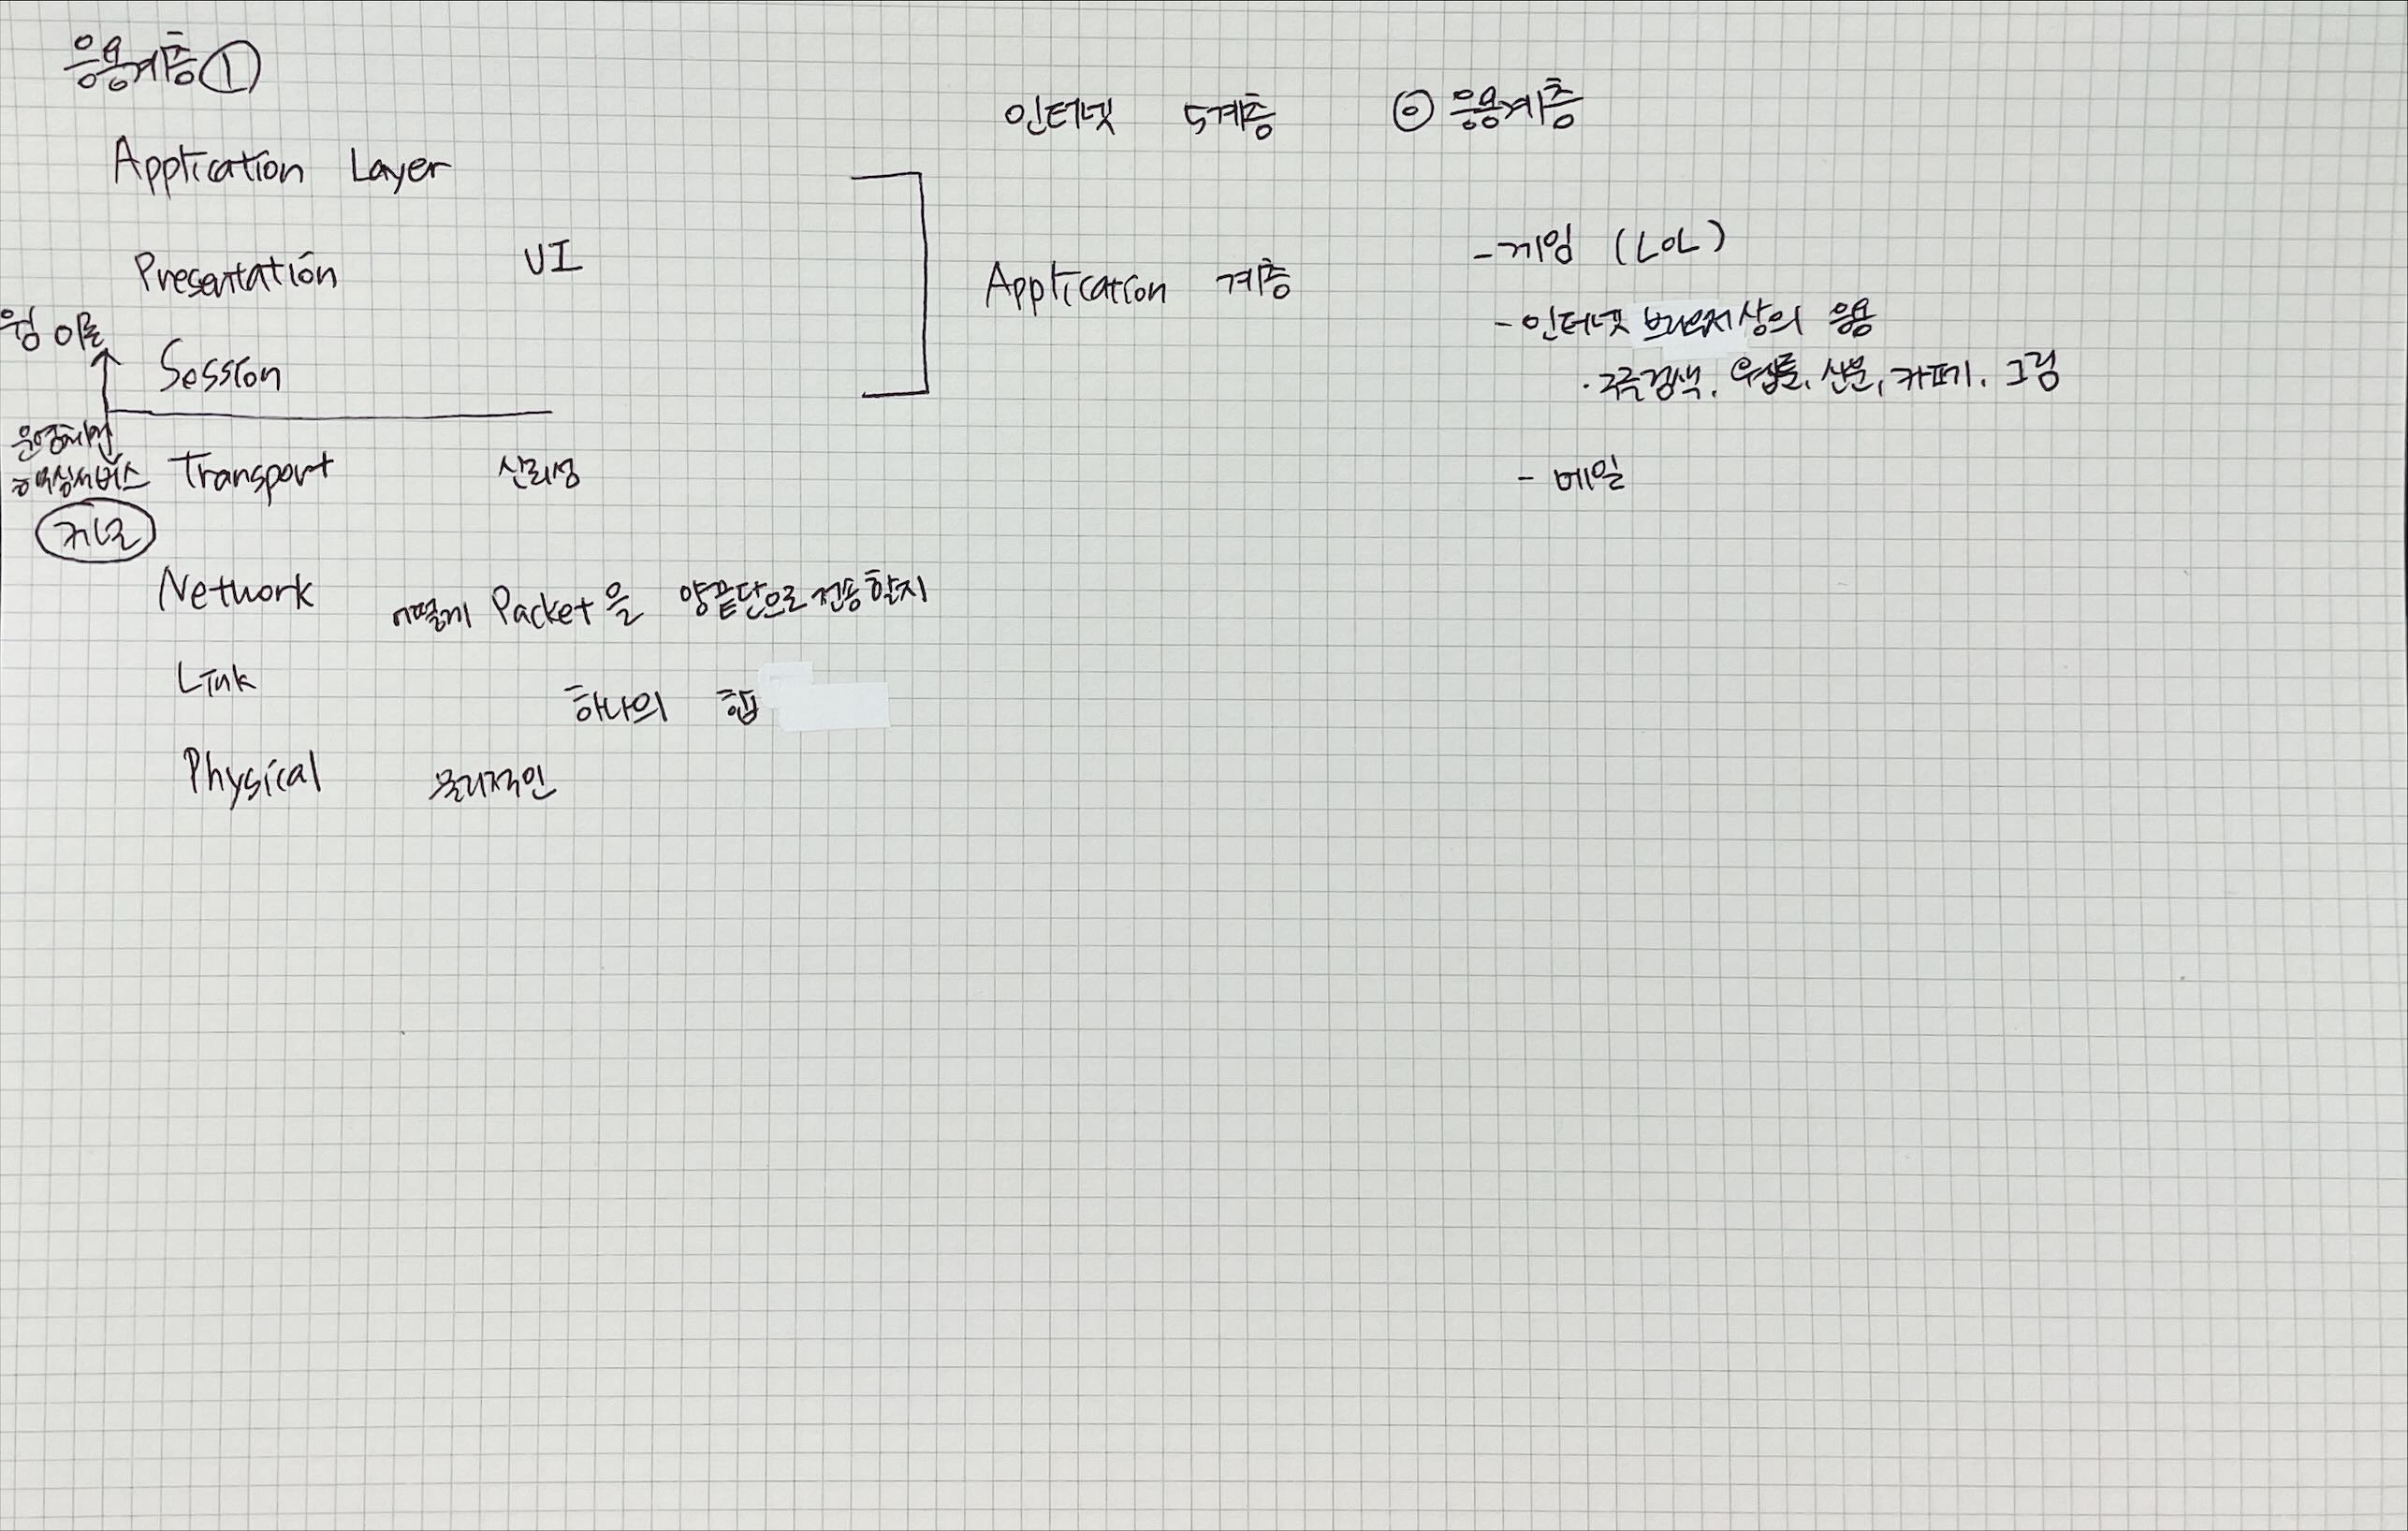 응용계층 ①
Application Layer
Presentation UI
Session
운영체제
핵심서비스
커널
Transport 신뢰성
Network 어떻게 Packet을 양끝단으로 전송할지
Link 하나의 홉
Physical 물리적인
인터넷 5계층
Application 계층
⊙ 응용계층
- 게임 (LOL)
- 인터넷 브라우저상의 응용
· 구글검색, 유튜브, 신문, 카페, 그림
- 메일